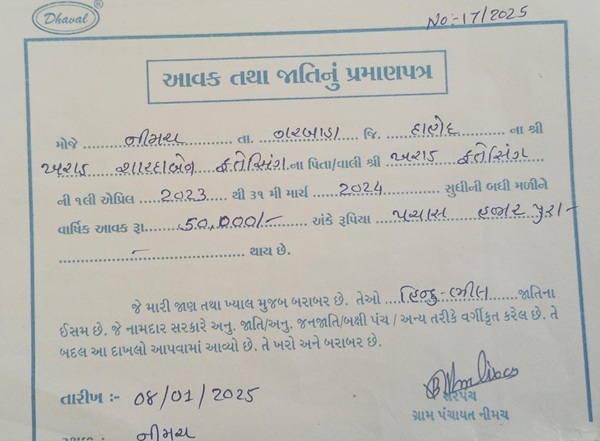 Dhaval
No:-17/2025
આવક તથા જાતિનું પ્રમાણપત્ર
મોજે નીમચ તા. ગરબાડા જિ. દાહોદ ના શ્રી
ખરાડ શારદાબેન ફતેસિંગ ના પિતા/વાલી શ્રી ખરાડ ફતેસિંગ
ની ૧લી એપ્રિલ 2023 થી ૩૧ મી માર્ચ 2024 સુધીની બધી મળીને
વાર્ષિક આવક રૂા. 50,000/- અંકે રૂપિયા પચાસ હજાર પુરા-
થાય છે.
જે મારી જાણ તથા ખ્યાલ મુજબ બરાબર છે. તેઓ હિન્દુ-ભીલ જાતિના
ઈસમ છે. જે નામદાર સરકારે અનુ. જાતિ/અનુ. જનજાતિ/બક્ષી પંચ / અન્ય તરીકે વર્ગીકૃત કરેલ છે. તે
બદલ આ દાખલો આપવામાં આવ્યો છે. તે ખરો અને બરાબર છે.
તારીખ :- 08/01/2025
સરપંચ
ગ્રામ પંચાયત નીમચ
નીમચ